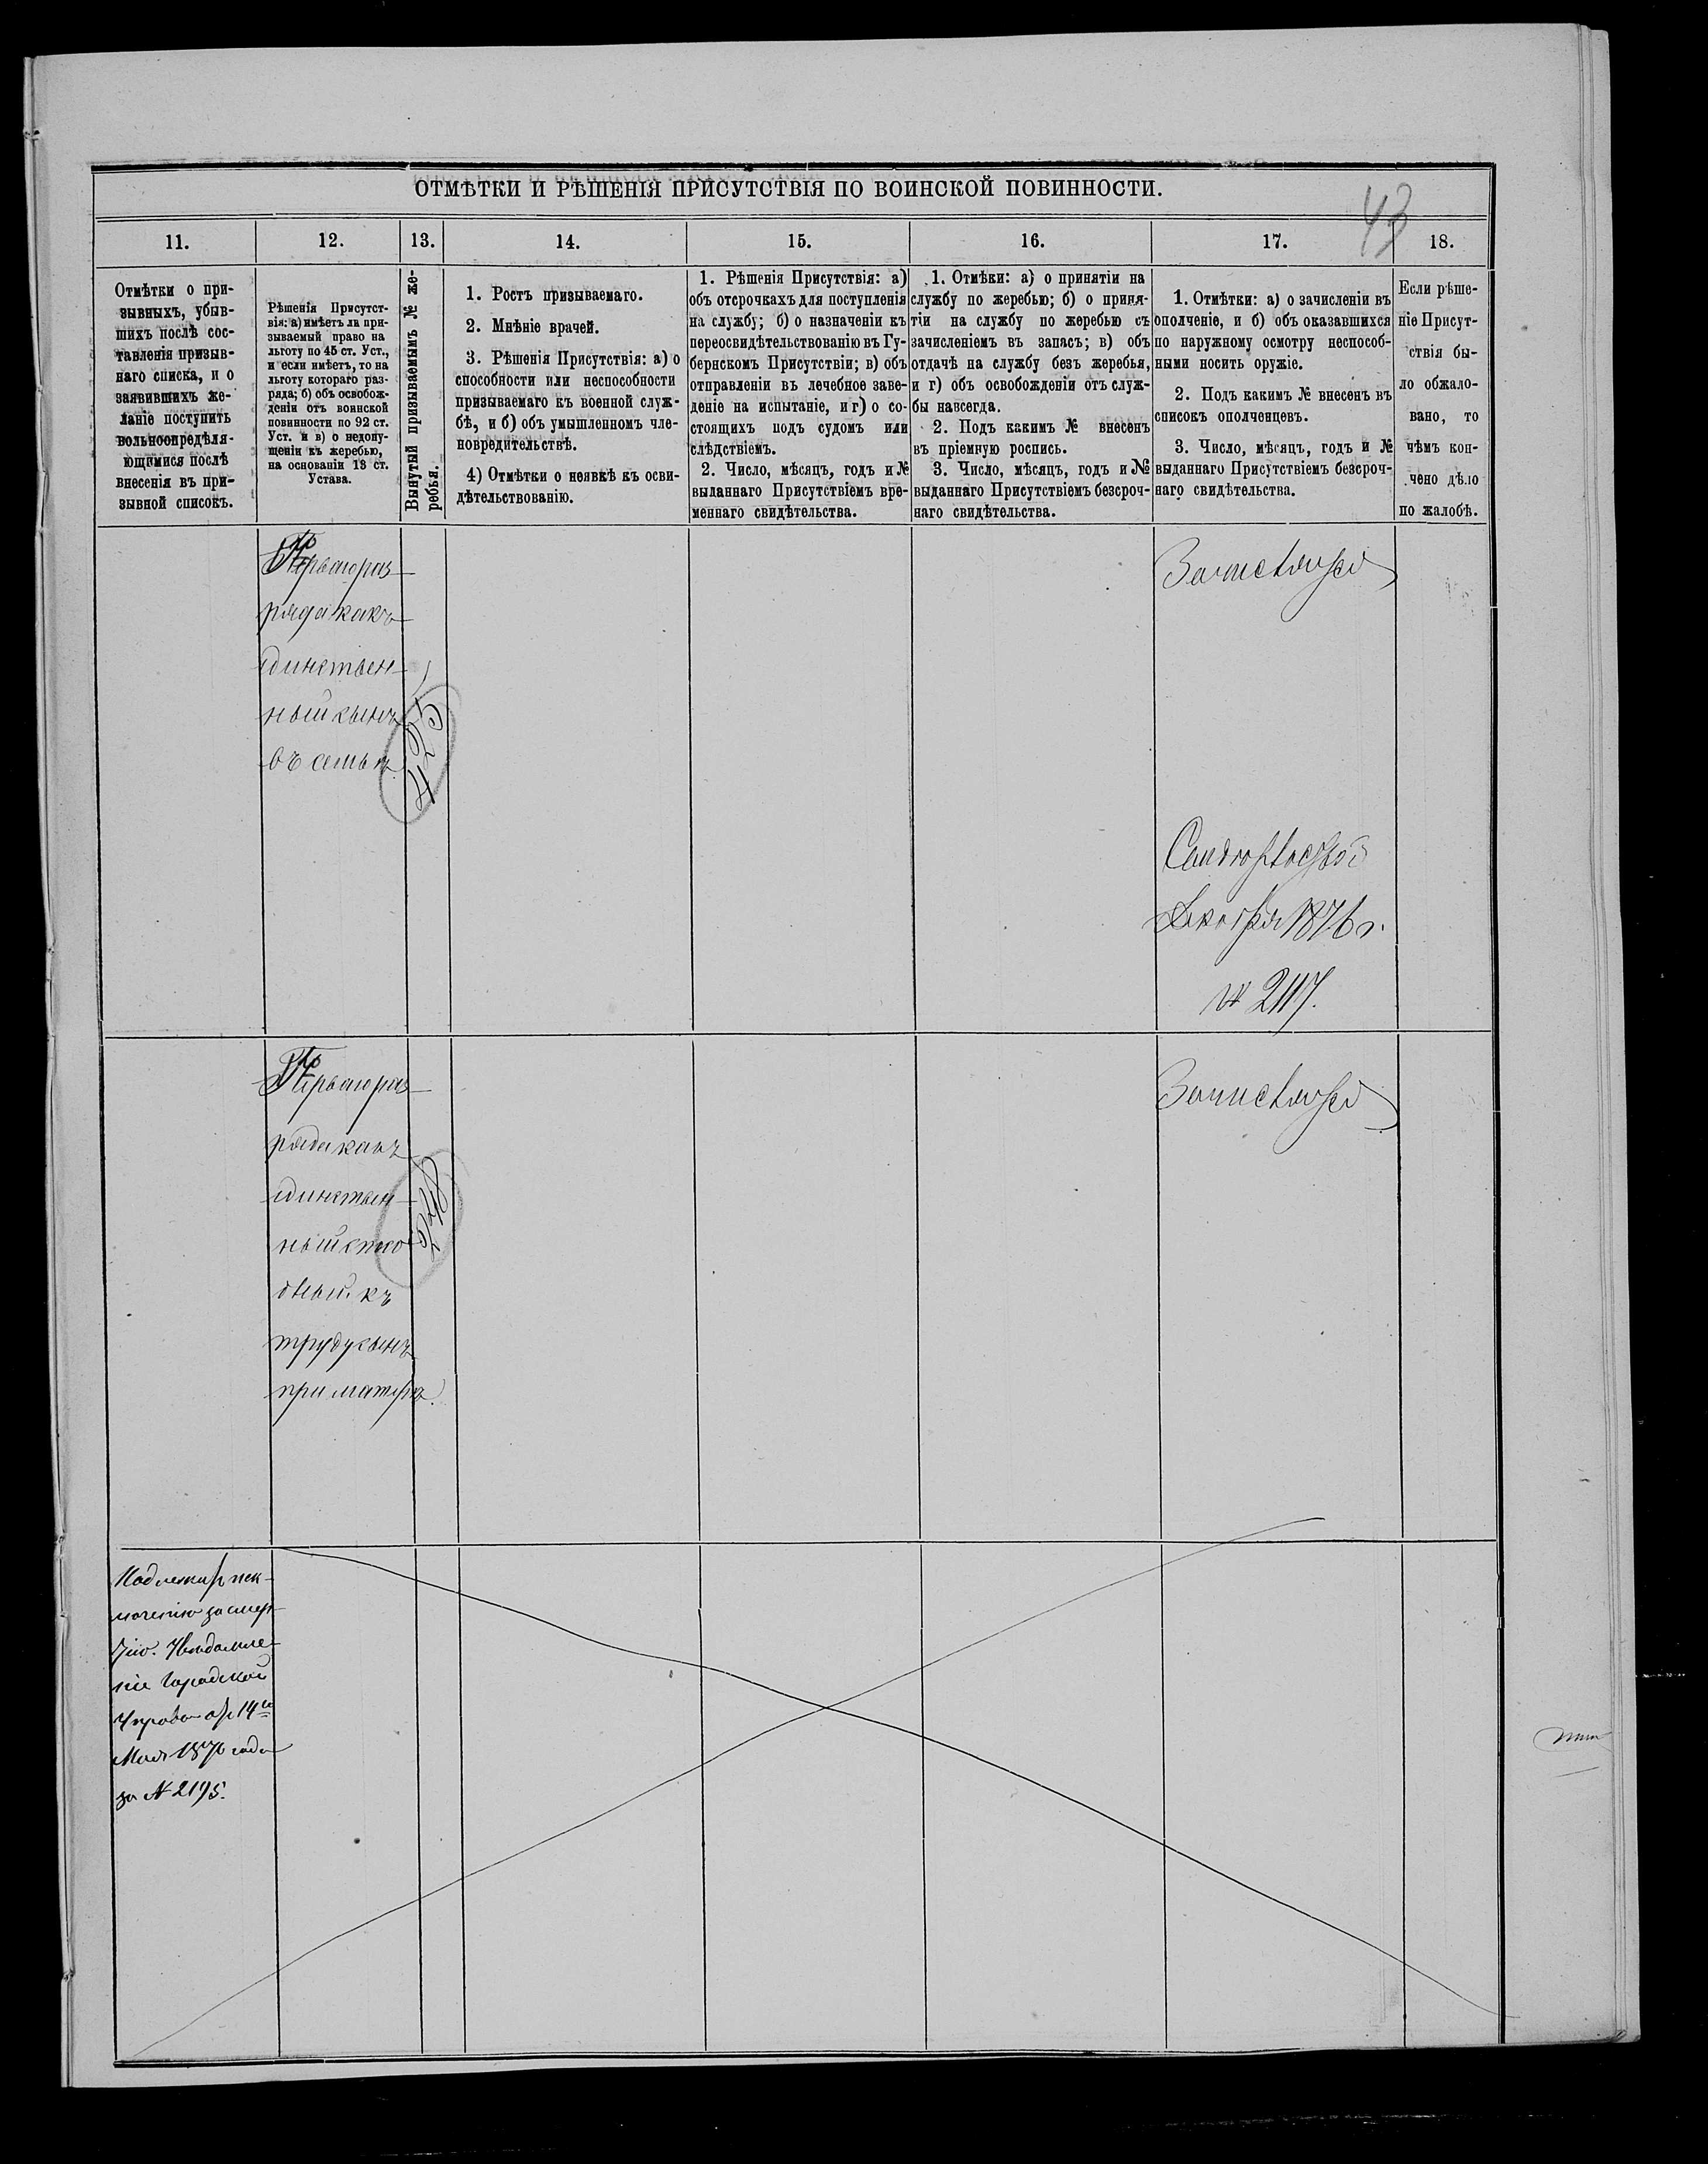 ОТМѢТКИ И РѢШЕНІЯ ПРИСУТСТВІЯ ПО ВОИНСКОЙ ПОВИННОСТИ.
43
11.
12.
13.
14.
15.
16.
17.
18.
Отмѣтки о при-
зывныхъ, убыв-
шихъ послѣ сос-
тавленія призыв-
наго списка, и о
заявившихъ же-
ланіе поступить
вольноопредѣля-
ющимися послѣ
внесенія въ при-
зывной списокъ.
Рѣшенія Присутст-
вія: а) имѣетъ ли при-
зываемый право на
льготу по 45 ст. Уст.,
и если имѣетъ, то на
льготу котораго раз-
ряда; б) объ освобож-
деніи отъ воинской
повинности по 92 ст.
Уст. и в) о недопу-
щеніи къ жеребью,
на основаніи 18 ст.
Устава.
Вынутый призываемымъ № же-
ребья.
1. Ростъ призываемаго.
2. Мнѣніе врачей.
3. Рѣшенія Присутствія: а) о
способности или неспособности
призываемаго къ военной служ-
бѣ, и б) объ умышленномъ чле-
новредительствѣ.
4) Отмѣтки о неявкѣ къ осви-
дѣтельствованію.
1. Рѣшенія Присутствія: а)
объ отсрочкахъ для поступленія
на службу; б) о назначеніи къ
переосвидѣтельствованію въ Гу-
бернскомъ Присутствіи; в) объ
отправленіи въ лечебное заве-
деніе на испытаніе, и г) о со-
стоящихъ подъ судомъ или
слѣдствіемъ.
2. Число, мѣсяцъ, годъ и №
выданнаго Присутствіемъ вре-
меннаго свидѣтельства.
1. Отмѣки: а) о принятіи на
службу по жеребью; б) о приня-
тіи на службу по жеребью съ
зачисленіемъ въ запасъ; в) объ
отдачѣ на службу безъ жеребья,
и г) объ освобожденіи отъ служ-
бы навсегда.
2. Подъ какимъ № внесенъ
въ пріемную роспись.
3. Число, мѣсяцъ, годъ и №
выданнаго Присутствіемъ безсроч-
наго свидѣтельства.
1. Отмѣтки: а) о зачисленіи въ
ополченіе, и б) объ оказавшихся
по наружному осмотру неспособ-
ными носить оружіе.
2. Подъ какимъ № внесенъ въ
списокъ ополченцевъ.
3. Число, мѣсяцъ, годъ и №
выданнаго Присутствіемъ безсроч-
наго свидѣтельства.
Если рѣше-
ніе Присут-
ствія бы-
ло обжало-
вано, то
чѣмъ кон-
чено дѣло
по жалобѣ.
Перваго раз-
ряда какъ
единствен-
ный сынъ
въ семьѣ.
425
Зачисляется
Декабря 1876 г.
№ 2117.
Перваго раз-
ряда какъ
единствен-
ный спо
обный къ
труду сынъ
при матери.
248
Зачисляется
Подлежитъ иск-
люченію за смер-
тію. Увѣдомле-
ніе Городской
Управы отъ 14го
Мая 1876 года
за № 2195.